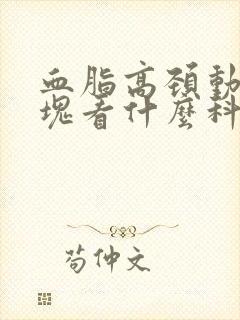 血脂高頚動
塊看什麼科
苟仲文